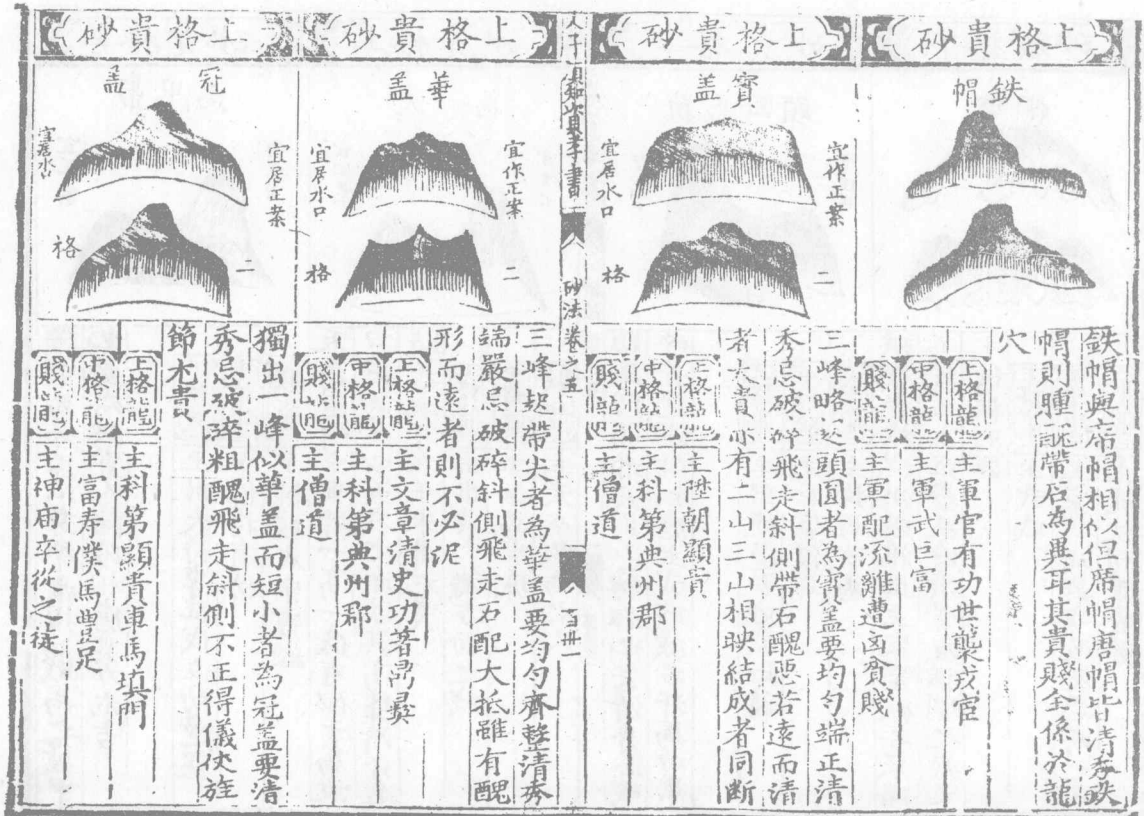 上格貴砂
鉄帽
鉄帽與席帽相似但席帽唐帽皆清秀鉄
帽則腫醜帶石為異耳其貴賤全係於龍
穴
上格龍 主軍官有功世襲戎官
中格龍 主軍武巨富
賤龍 主軍配流離遭凶貧賤
上格貴砂
寶盖
宜作正案
宜居水口
二
格
三峰略起頭圓者為寶盖要均勻端正清
秀忌破碎飛走斜側帶石醜惡若遠而清
者大貴亦有二山三山相映結成者同斷
上格龍 主陞朝顯貴
中格龍 主科第典州郡
賤龍 主僧道
人子須知資孝書
砂法 卷之五
百卅一
上格貴砂
華盖
宜作正案
宜居水口
二
格
三峰起帶尖者為華盖要均勻齊整清秀
端嚴忌破碎斜側飛走石配大抵雖有醜
形而遠者則不必泥
上格龍 主文章清史功著鼎彛
中格龍 主科第典州郡
賤龍 主僧道
上格貴砂
冠盖
宜居正案
宜居水口
二
格
獨出一峰似華盖而短小者為冠盖要清
秀忌破碎粗醜飛走斜側不正得儀仗旌
節尤貴
上格龍 主科第顯貴車馬填門
中格龍 主富寿僕馬豊足
賤龍 主神庙卒從之徒